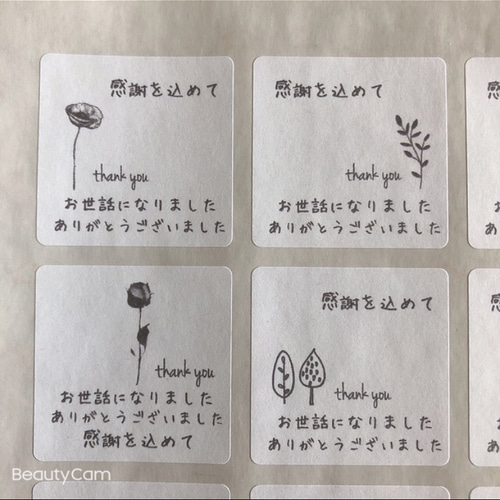 感謝を込めて
thank you
お世話になりました
ありがとうございました
感謝を込めて
thank you
お世話になりました
ありがとうございました
thank you
お世話になりました
ありがとうございました
感謝を込めて
感謝を込めて
thank you
お世話になりました
ありがとうございました
BeautyCam